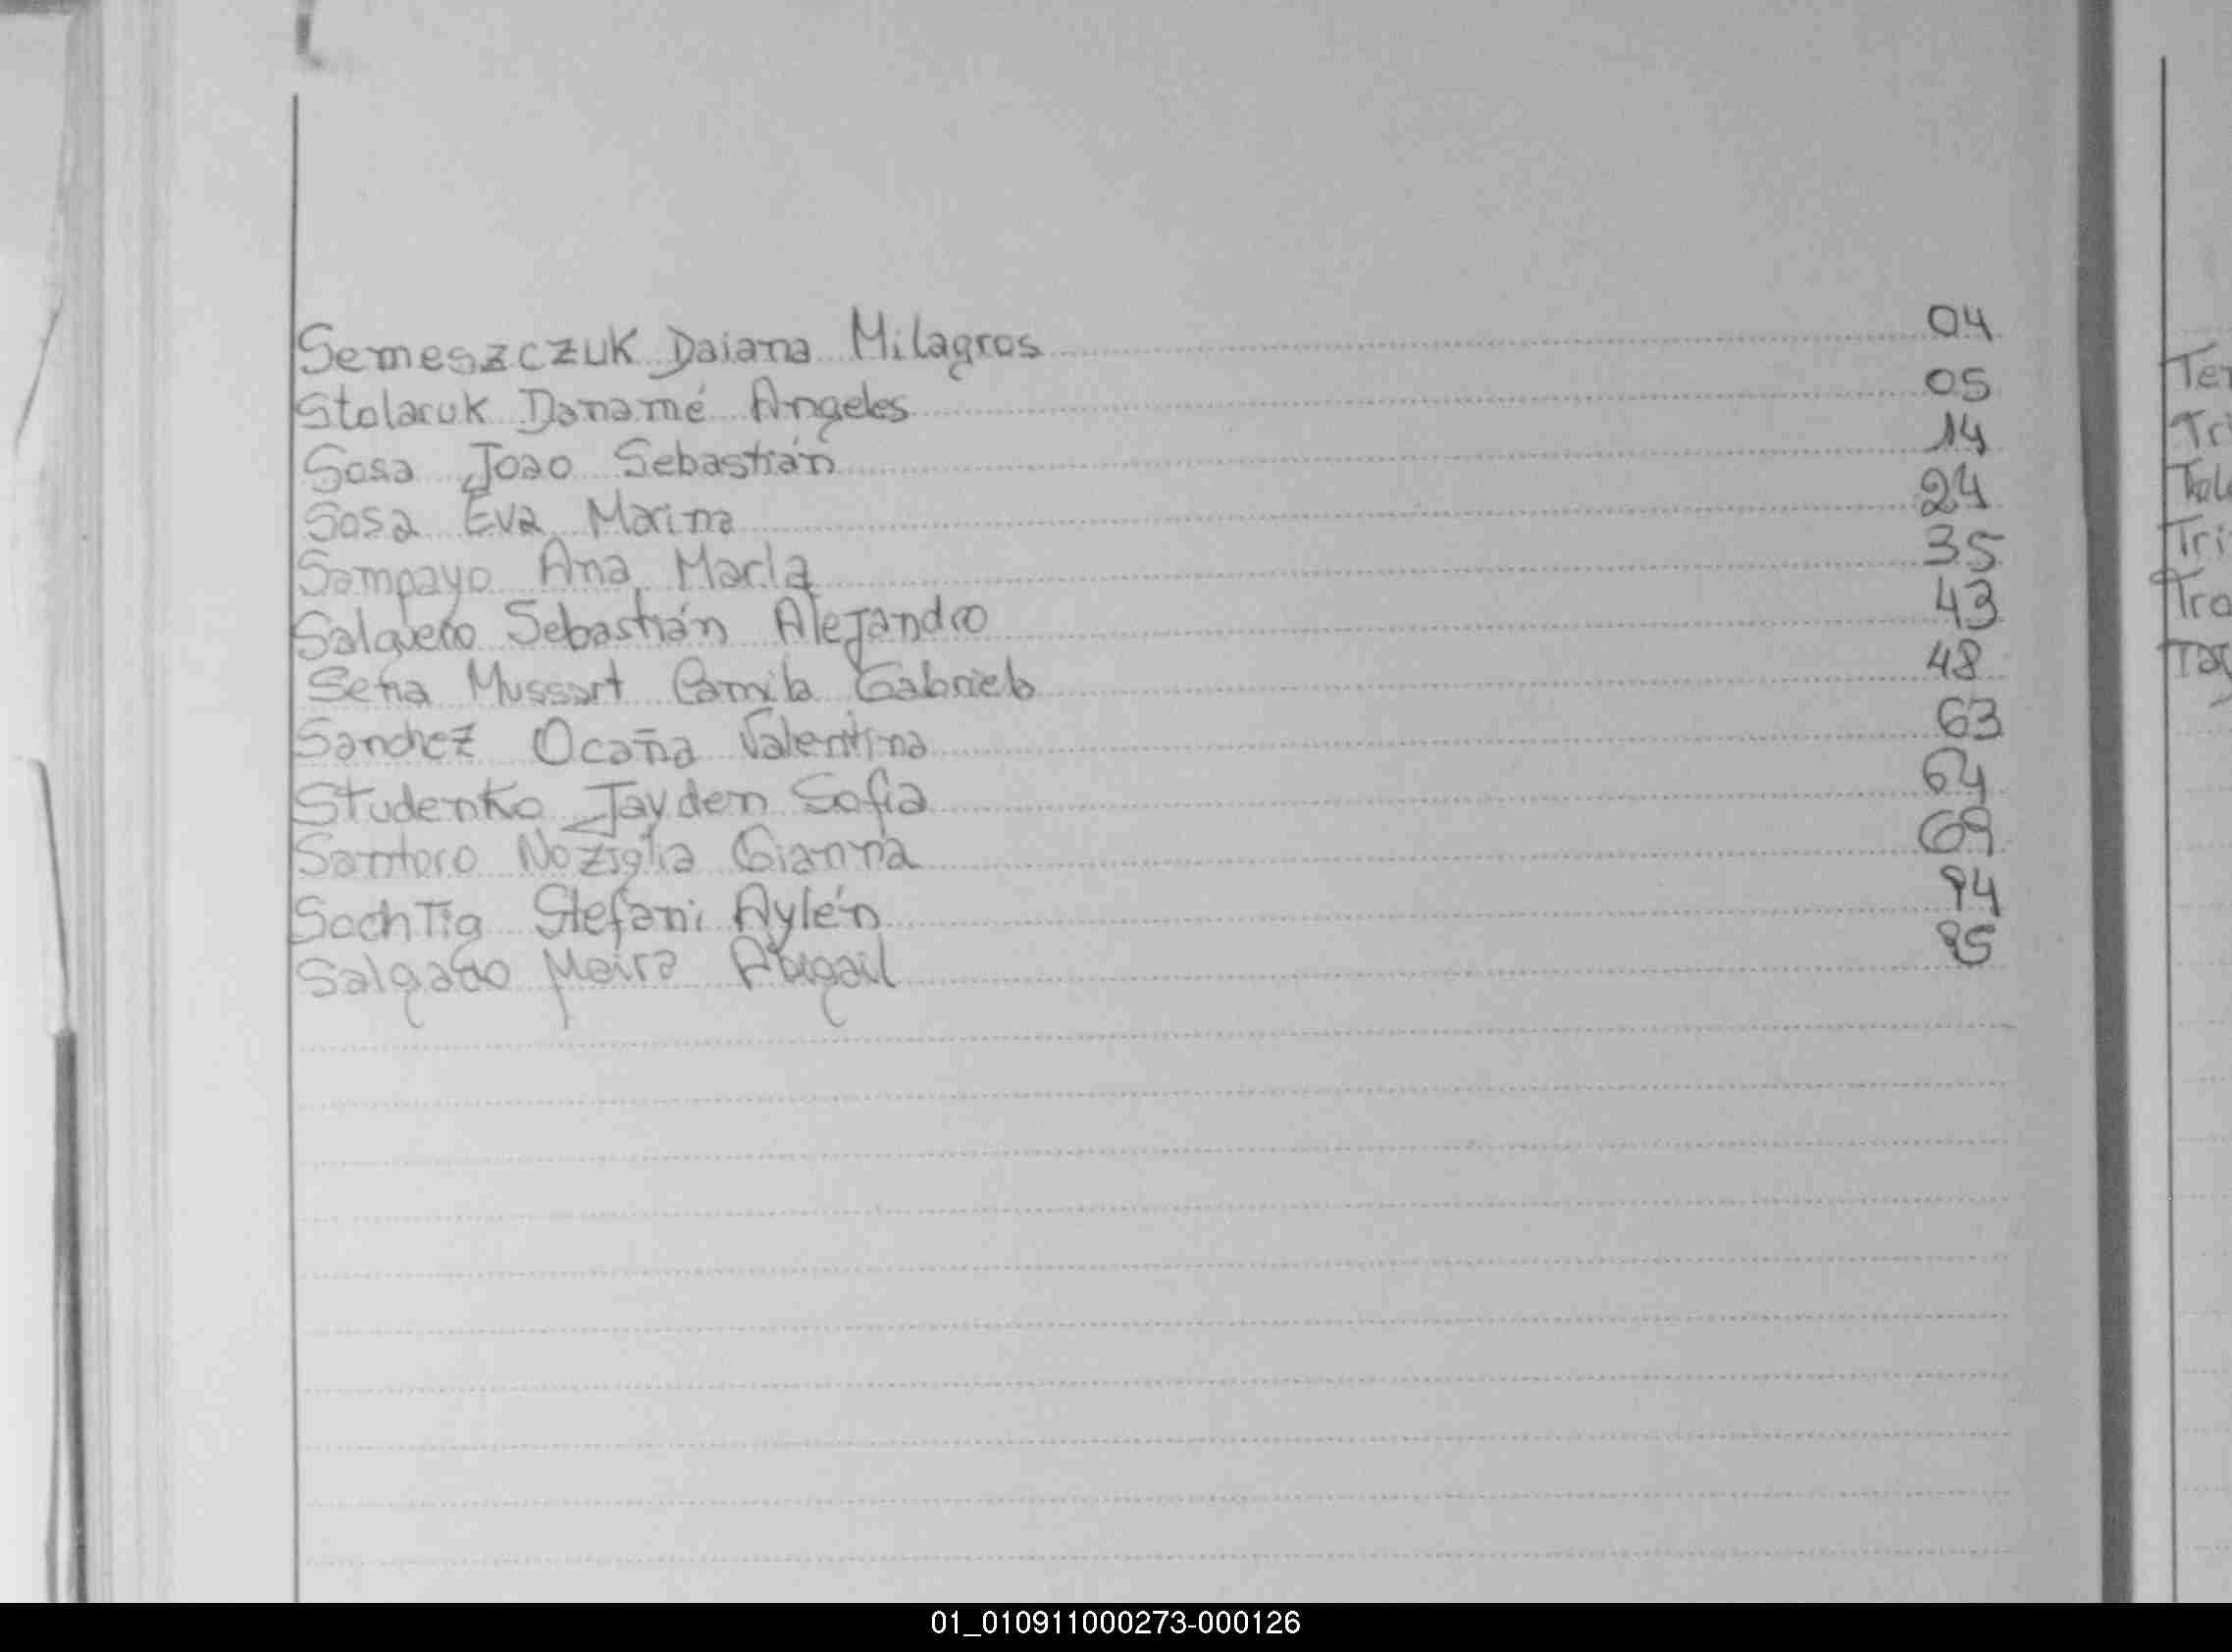 Semeszczuk Daiana Milagros 04
Stolaruk Danamé Angeles 05
Sosa Joao Sebastián 14
Sosa Eva Marina 24
Sampayo Ana María 35
Salguero Sebastián Alejandro 43
Seña Mussart Camila Gabriela 48
Sanchez Ocaña Valentina 63
Studenko Jayden Sofia 64
Santoro Noziglia Gianna 69
Sachtig Stefani Aylén 94
Salgado Meira Abigail 95
Tri
01_010911000273-000126